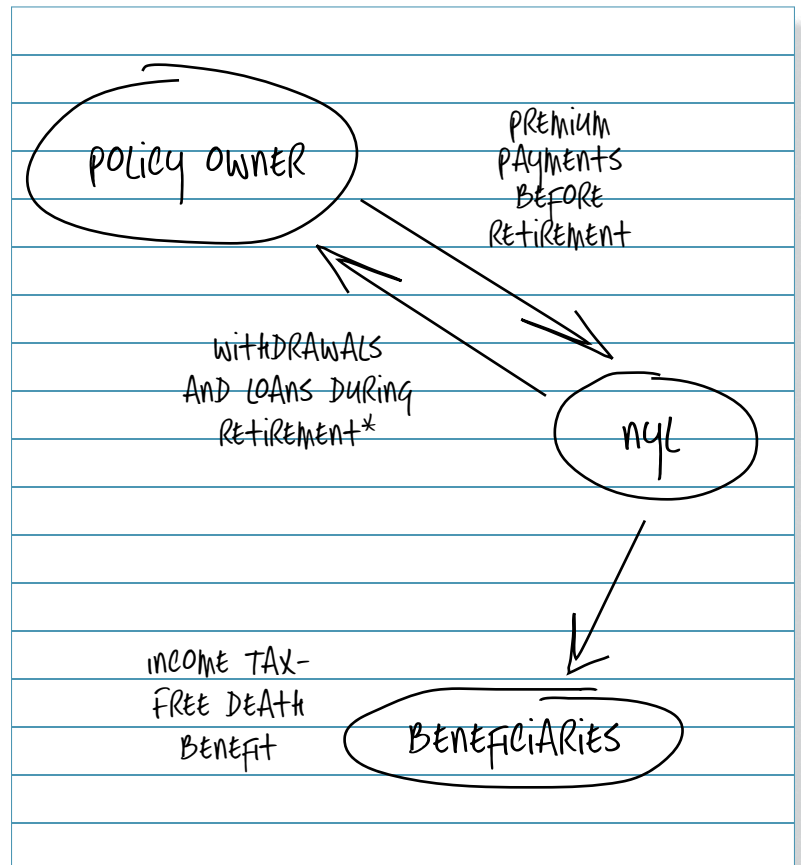 POLICY OWNER
PREMIUM
PAYMENTS
BEFORE
RETIREMENT
WITHDRAWALS
AND LOANS DURING
RETIREMENT*
NYL
INCOME TAX-
FREE DEATH
BENEFIT
BENEFICIARIES